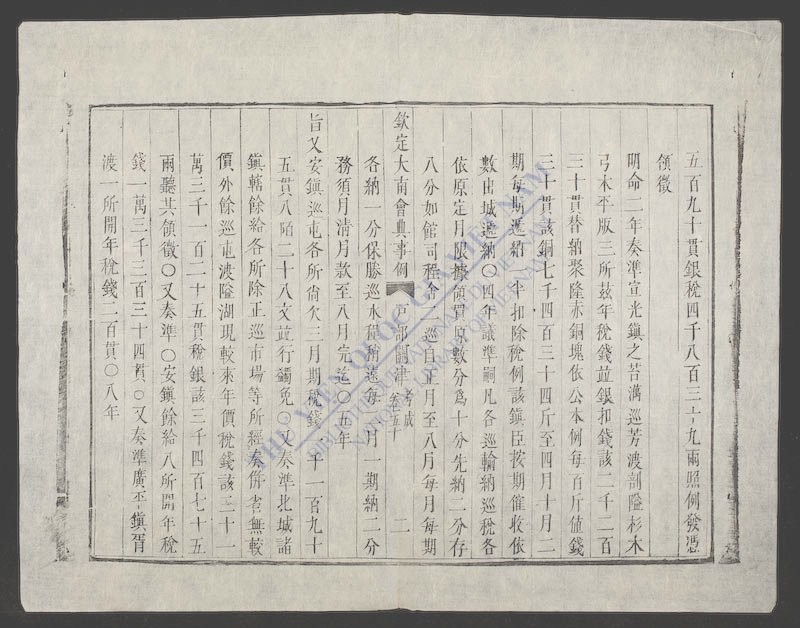 五百九十貫銀稅四千八百三十九兩照例發憑
領徵
明命二年奏準宣光鎮之苔漓巡芳渡剖隘杉木
弓木平版三所茲年稅錢並銀扣錢該二千二百
三十貫替納聚隆赤銅塊依公本例每百斤值錢
三十貫該銅七千四百三十四斤至四月十月二
期每期遞納一半扣除稅例該鎮臣按期催收依
數由城遞納○四年議準嗣凡各巡輸納巡稅各
依原定月限據領買原數分為十分先納二分存
八分如館司程會巡自正月至八月每月每期
欽定大南會典事例 戶部關津 考成 卷五十 二
各納一分保勝巡水程稍遠每二月一期納二分
務須月清月款至八月完迄○五年
旨又安鎮巡屯各所尚欠三月期稅錢一千一百九十
五貫八陌二十八文並行蠲免○又奏準北城諸
鎮轄餘給各所除正巡市場等所經奏併省無較
價外餘巡屯渡隘湖現較來年價稅錢該三十一
萬三千一百二十五貫稅銀該三千四百七十五
兩聽其領徵○又奏準○安鎮餘給八所開年稅
錢一萬三千三百三十四貫○又奏準廣平鎮胥
渡一所開年稅錢二百貫○八年
THE VIEN QUOC GIA VIET NAM
BIBLIOTHEQUE NATIONALE DU VIETNAM
NATIONAL LIBRARY OF VIETNAM